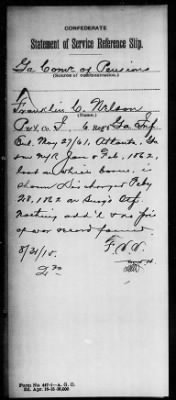 CONFEDERATE
Statement of Service Reference Slip.
Ga Com'r of Pensions
(Source of communication.)
Franklin C. Wilson
(Name.)
Pvt, Co. I, 6 Reg't Ga Inf
Enl. May 27/61, Atlanta, Ga
on M/R Jan & Feb, 1862,
last on which borne, is
shown Discharged Feby
28, 1862 on Surg's Ctf.
Nothing add'l & no pris
of war record found.
8/31/15
Form No. 447-1—A. G. O.
Ed. Apr.